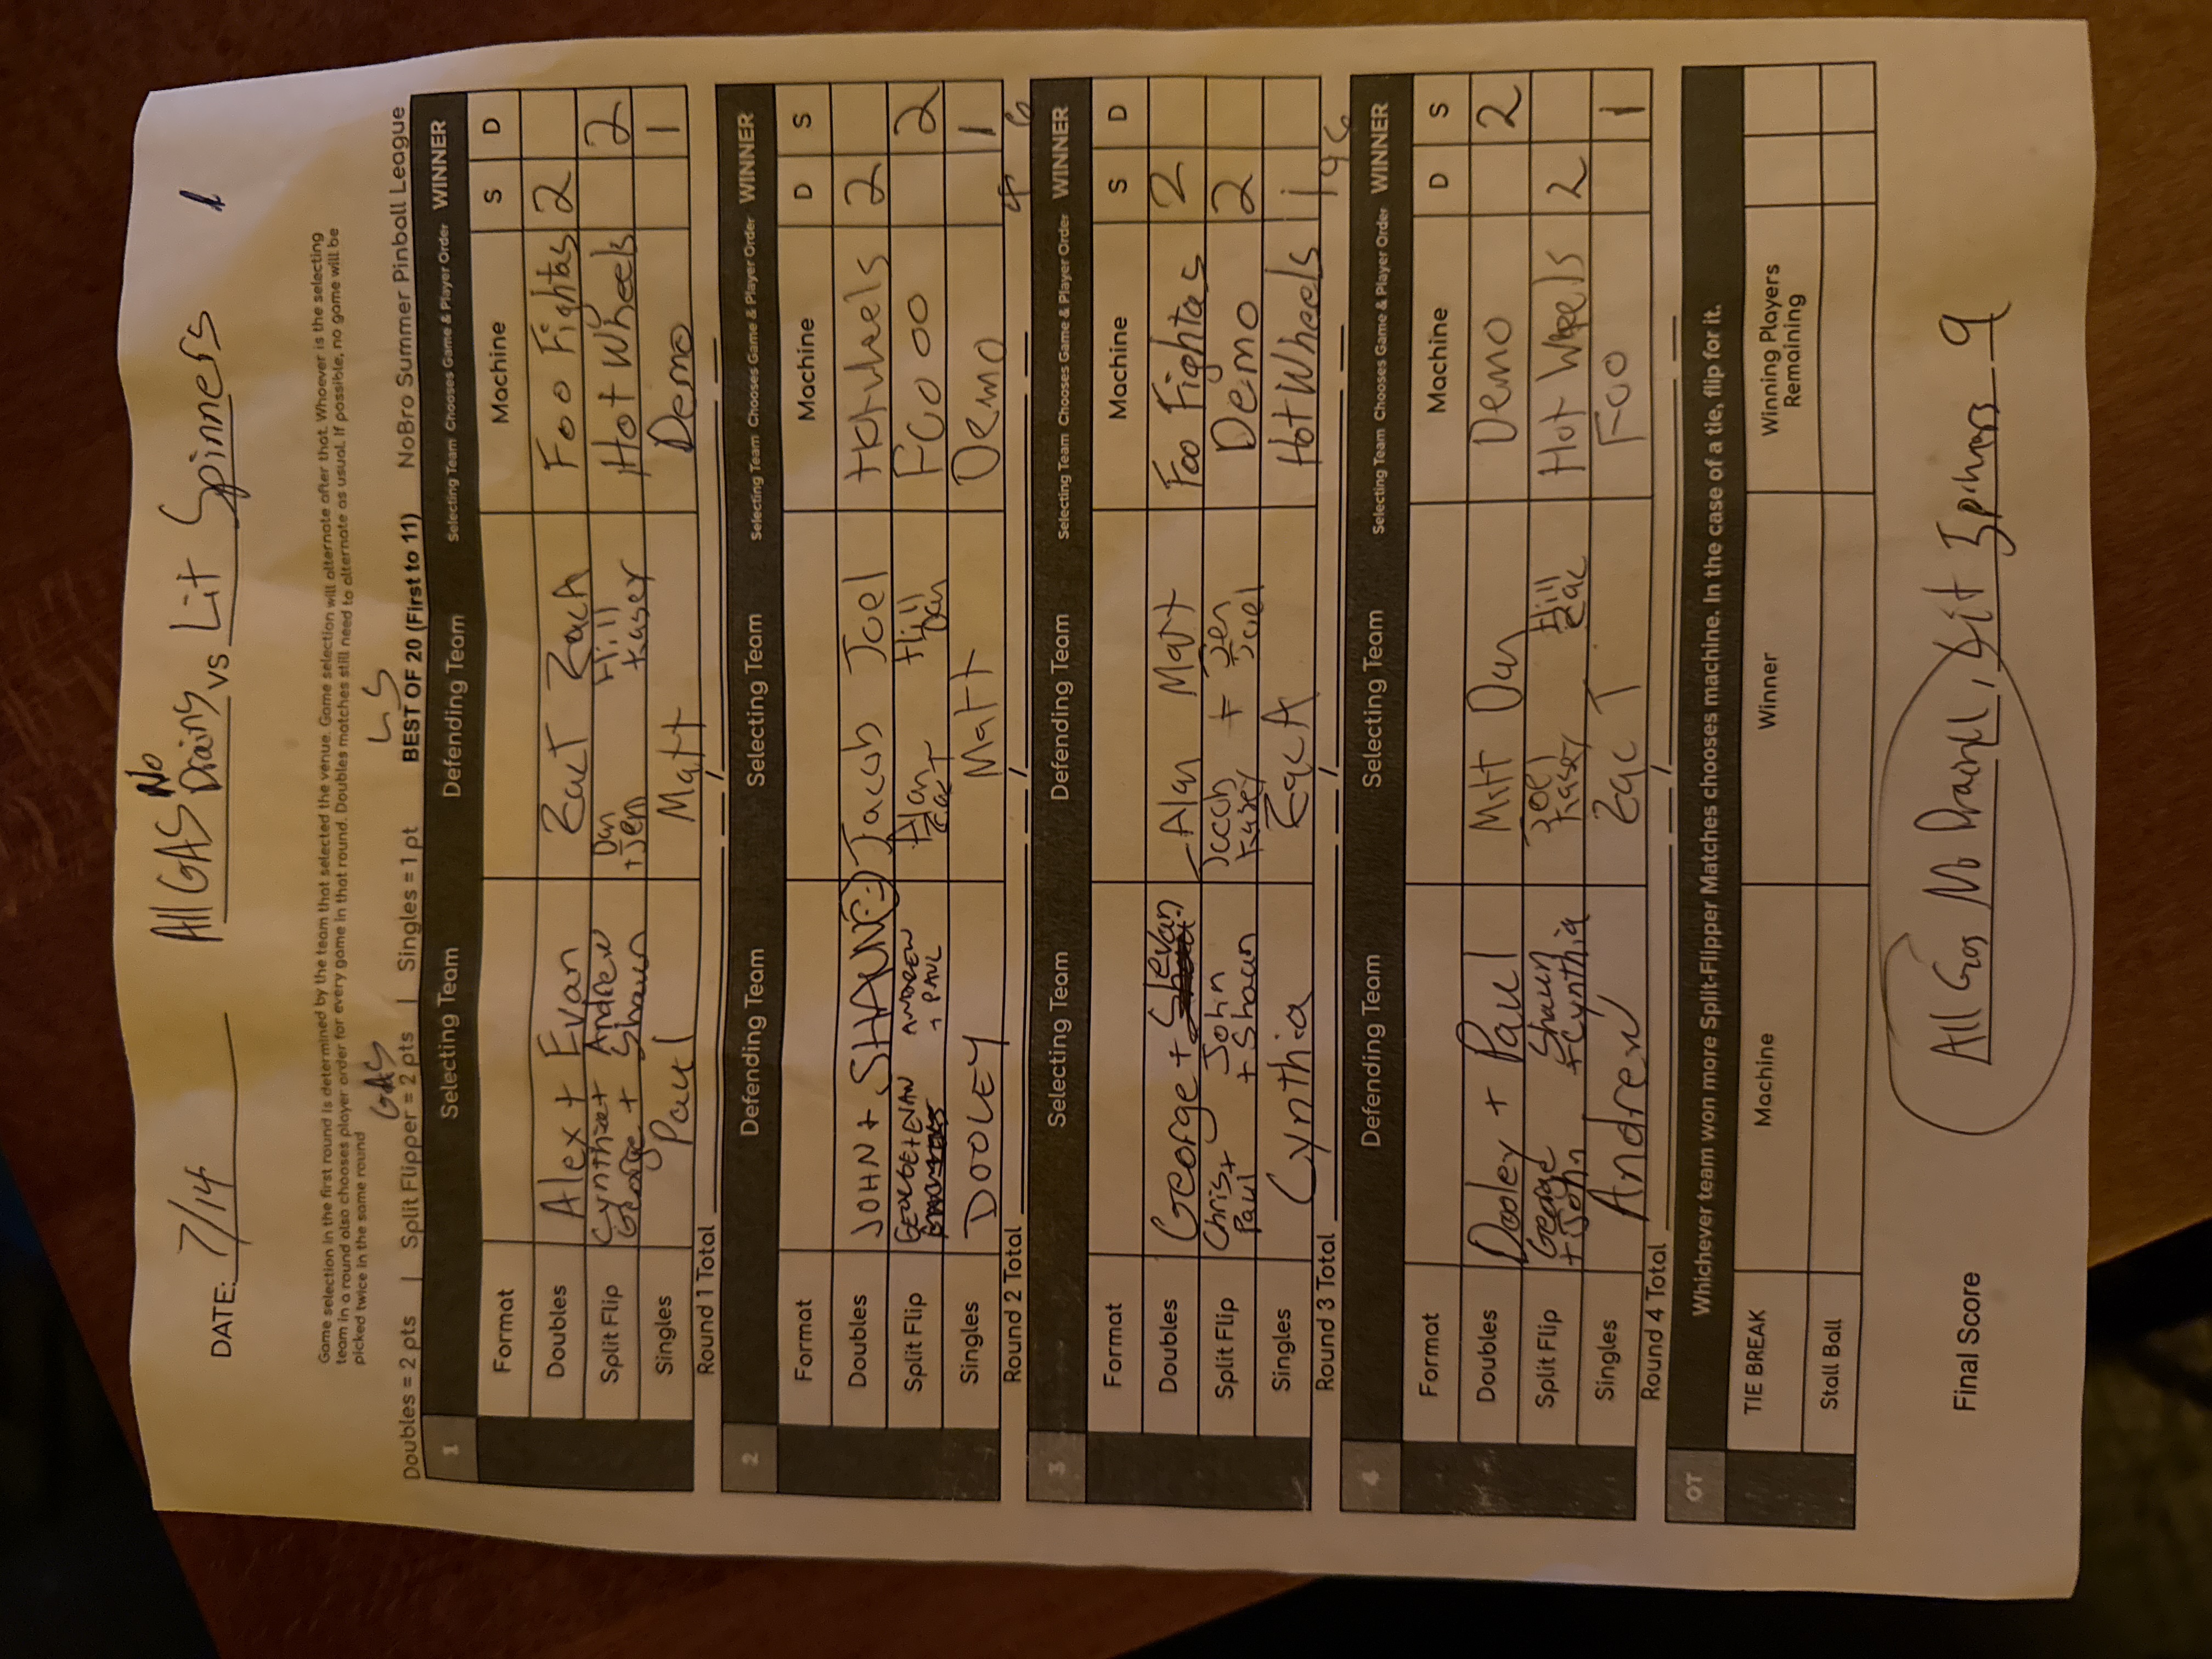 DATE: 7/14 All GAS No Drains vs Lit Spinners
Game selection in the first round is determined by the team that selected the venue. Game selection will alternate after that. Whoever is the selecting
team in a round also chooses player order for every game in that round. Doubles matches still need to alternate as usual. If possible, no game will be
picked twice in the same round
GAS LS
Doubles = 2 pts | Split Flipper = 2 pts | Singles = 1 pt BEST OF 20 (First to 11) NoBro Summer Pinball League
1 Selecting Team Defending Team Selecting Team Chooses Game & Player Order WINNER
Format Machine S D
Doubles Alex + Evan ZacT Zach Foo Fighters 2
Split Flip Cynthia + Andrew George + Shawn Dan + Jen Hill Kasey Hot Wheels 2
Singles Paul Matt Demo 1
Round 1 Total
2 Defending Team Selecting Team Selecting Team Chooses Game & Player Order WINNER
Format Machine D S
Doubles JOHN + SHAWN :) Jacob Joel Hotwheels 2
Split Flip GEORGE + EVAN ANDREW + PAUL Alan ZacT Hill Dan FOO OO 2
Singles DOOLEY Matt Demo 1
Round 2 Total 4 6
3 Selecting Team Defending Team Selecting Team Chooses Game & Player Order WINNER
Format Machine S D
Doubles George + Evan Alan Matt Foo Fighters 2
Split Flip Chris + Paul John + Shawn Jacob Kasey + Jen Joel Demo 2
Singles Cynthia ZacH Hot Wheels 1
Round 3 Total 9 6
4 Defending Team Selecting Team Selecting Team Chooses Game & Player Order WINNER
Format Machine D S
Doubles Dooley + Paul Matt Dan Demo 2
Split Flip George + John Shawn + Cynthia Joel Kasey Hill Zac Hot Wheels 2
Singles Andrew Zac T Foo 1
Round 4 Total
OT Whichever team won more Split-Flipper Matches chooses machine. In the case of a tie, flip for it.
TIE BREAK Machine Winner Winning Players Remaining
Stall Ball
Final Score All Gas No Drains 11, Lit Spinners 9